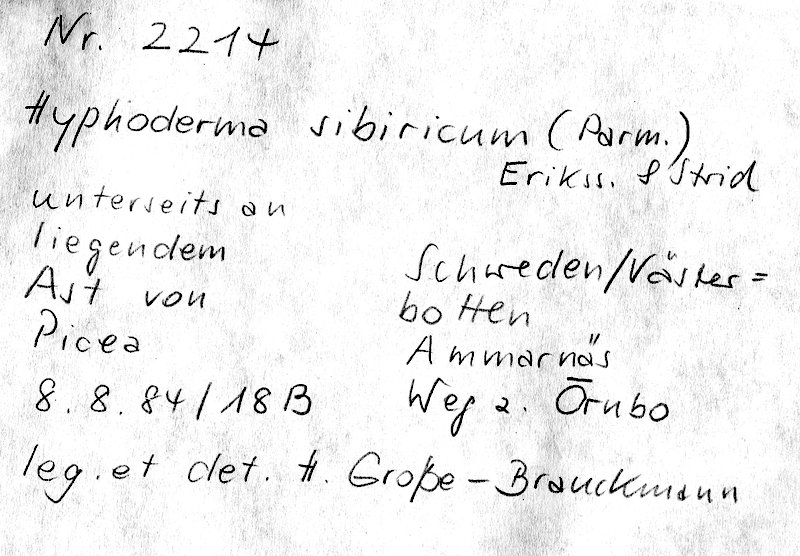 Nr. 2214
Hyphoderma sibiricum (Parm.)
Erikss. & Strid
unterseits an
liegendem
Ast von
Picea
8. 8. 84/18B
Schweden/Väster=
botten
Ammarnäs
Weg z. Örnbo
leg. et det. H. Große-Brauckmann